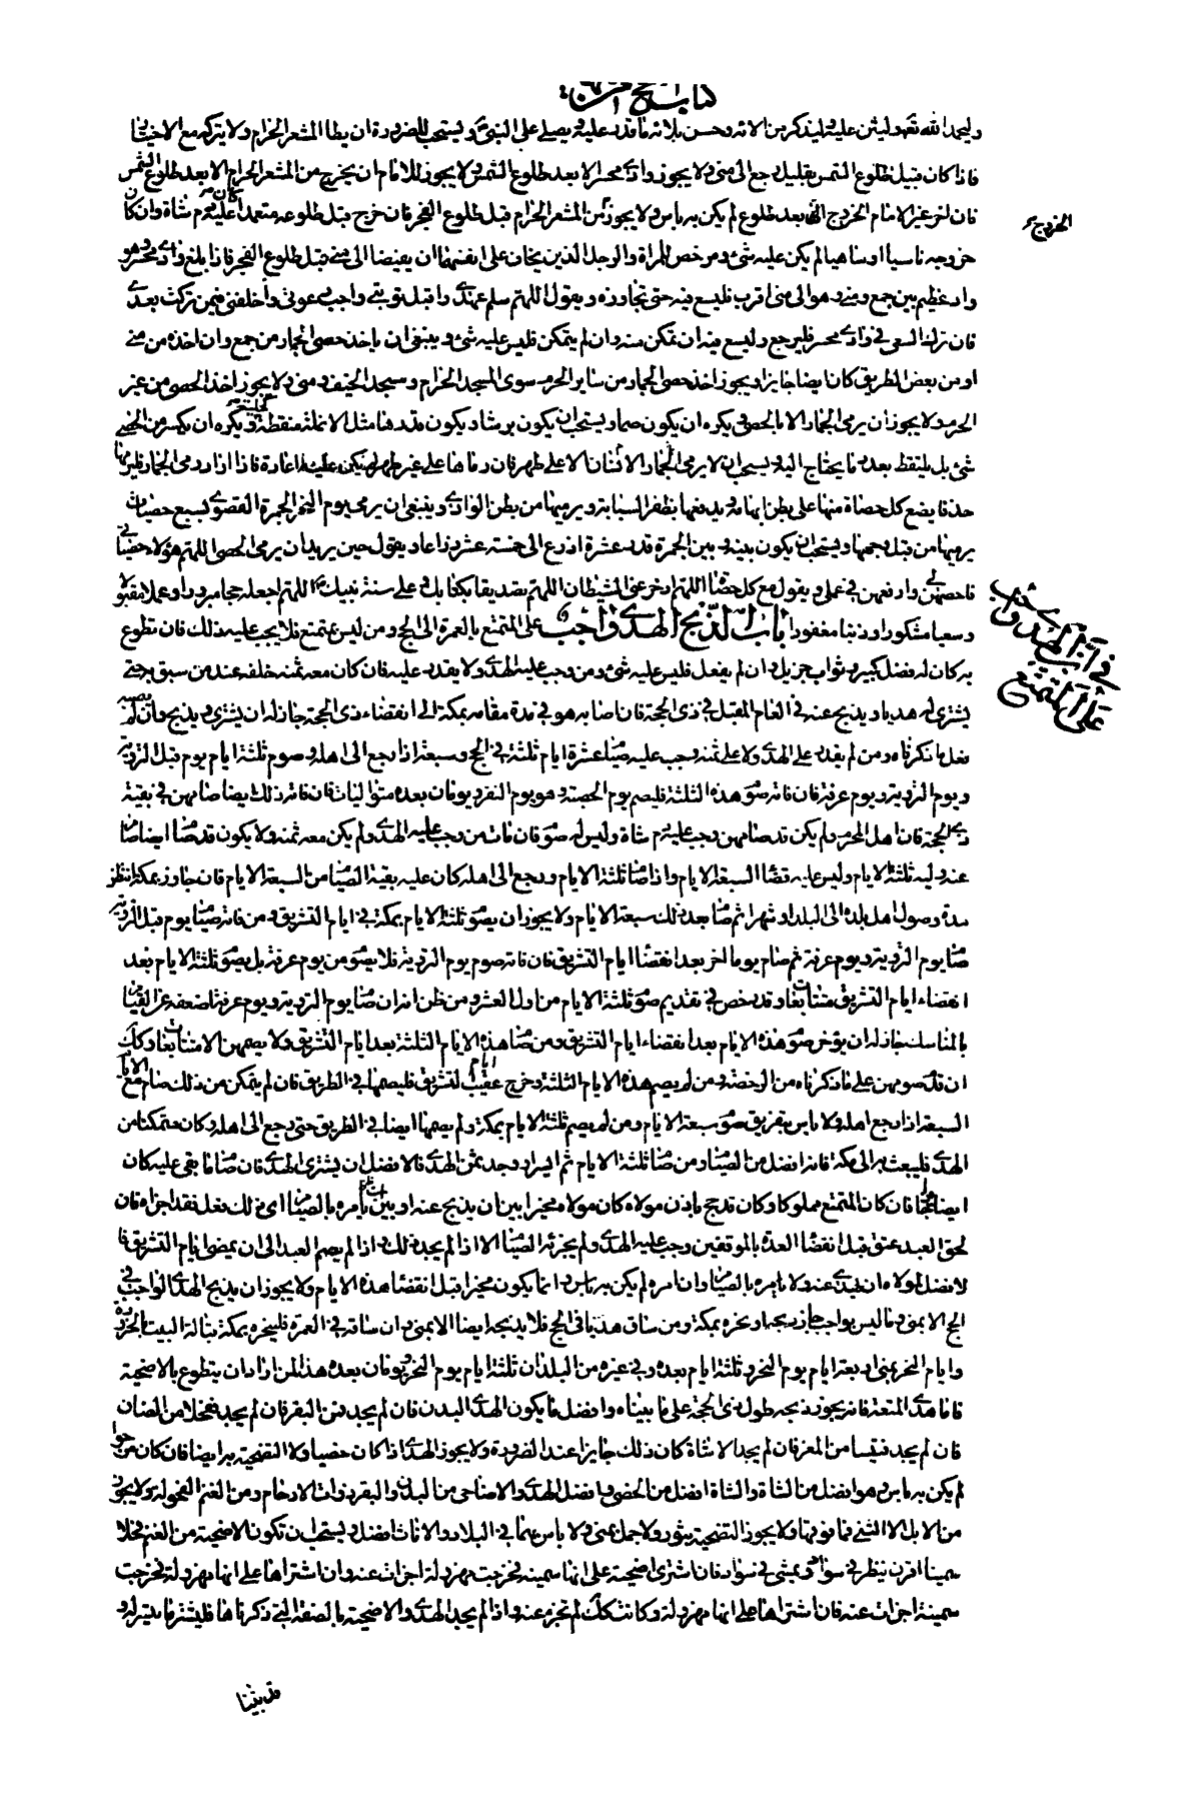 كتاب الحج
وليحمد الله تعالى وليثن عليه وليذكر من آلائه وحسن بلائه ما قدر عليه ويصلي على النبي ويستحب للصرورة ان يطأ المشعر الحرام ولا يتركه مع الاختيار
فاذا كان قبل طلوع الشمس بقليل رجع الى منى ولا يجوز وادي محسر الا بعد طلوع الشمس ولا يجوز للامام ان يخرج من المشعر الحرام الا بعد طلوع الشمس
فان اخر غير الامام الخروج الى بعد طلوع لم يكن به باس ولا يجوز من المشعر الحرام قبل طلوع الفجر فان خرج قبل طلوعه متعمدا كان عليه دم شاة وان كان
الخروج
خروجه ناسيا او ساهيا لم يكن عليه شئ ومرخص للمراة والرجل الذين يخاف على انفسهما ان يفيضا الى منى قبل طلوع الفجر فاذا بلغ وادي محسر وهو
واد عظيم بين جمع ومنى وهو الى منى اقرب فليسع فيه حتى تجاوزه ويقول اللهم سلم عهدي واقبل توبتي واجب دعوتي واخلفني فيمن تركت بعدي
فان ترك السعي في وادي محسر فليرجع وليسع فيه ان تمكن منه وان لم يتمكن فليس عليه شئ وينبغي ان ياخذ حصى الجمار من جمع وان اخذه من منى
او من بعض الطريق كان ايضا جايزا ويجوز اخذ حصى الجمار من ساير الحرم سوى المسجد الحرام ومسجد الخيف ومن ولا يجوز اخذ الحصى من غير
الحرم ولا يجوز ان يرمي الجمار الا بالحصى ويكره ان يكون صما ويستحب ان يكون برشا ويكون قدرها مثل الانملة منقطة كحلية ويكره ان يكسر من الحصى
شئ بل يلتقط بعدد ما يحتاج اليه ويستحب ان لا يرمي الجمار الانسان الا على طهر فان رماها على غير طهر لم يكن عليه اعادة فاذا اراد رمي الجمار فليرمها
حذفا يضع كل حصاة منها على بطن ابهامه ويدفعها بظفر السبابة ويرميها من بطن الوادي وينبغي ان يرمي يوم النحر الجمرة القصوى بسبع حصيات
يرميها من قبل وجهها ويستحب ان يكون بينه وبين الجمرة قدر عشرة اذرع الى خمسة عشر ذراعا ويقول حين يريد ان يرمي الحصى اللهم هؤلاء حصياتي
فاحصهن لي وارفعهن في عملي ويقول مع كل حصاة اللهم ادحر عني الشيطان اللهم تصديقا بكتابك وعلى سنة نبيك اللهم اجعله حجا مبرورا وعملا مقبولا
وسعيا مشكورا وذنبا مغفورا باب الذبح الهدي واجب على المتمتع بالعمرة الى الحج ومن ليس بمتمتع فلا يجب عليه ذلك فان تطوع
في ان الهدي واجب
على المتمتع
به كان له فضل كبير وثواب جزيل وان لم يفعل فليس عليه شئ ومن وجب عليه الهدي ولا يقدر عليه فان كان معه ثمنه خلفه عند من يثق به حتى
يشتري له هديا ويذبح عنه في العام المقبل في ذي الحجة فان اصابه هو في مدة مقامه بمكة الى انقضاء ذي الحجة جاز له ان يشتري ويذبح وان لم يصبه
فعل ما ذكرناه ومن لم يقدر على الهدي ولا على ثمنه وجب عليه صيام عشرة ايام ثلثة في الحج وسبعة اذا رجع الى اهله وصوم ثلثة ايام يوم قبل التروية
ويوم التروية ويوم عرفة فان فاته صوم هذه الثلثة فليصم يوم الحصبة وهو يوم النفر ويومان بعده متواليات فان فاته ذلك ايضا صامهن في بقية
ذي الحجة فان اهل المحرم ولم يكن قد صامهن وجب عليه دم شاة وليس له صوم فان مات من وجب عليه الهدي ولم يكن معه ثمنه ولا يكون قد صام ايضا صام
عنه وليه ثلثة الايام وليس عليه قضاء السبعة الايام واذا صام ثلثة الايام ورجع الى اهله كان عليه بقية الصيام من السبعة الايام فان جاور بمكة انتظر
مدة وصول اهل بلده الى البلد او شهرا ثم صام بعد ذلك سبعة الايام ولا يجوز ان يصوم ثلثة الايام بمكة في ايام التشريق ومن فاته صيام يوم قبل التروية
صام يوم التروية ويوم عرفة ثم صام يوما اخر بعد انقضاء ايام التشريق فان فاته صوم يوم التروية فلا يصوم يوم عرفة بل يصوم ثلثة الايام بعد
انقضاء ايام التشريق متتابعا وقد رخص في تقديم صوم ثلثة الايام من اول العشر ومن ظن انه ان صام يوم التروية ويوم عرفة اضعفه عن القيام
بالمناسك جاز له ان يؤخر صوم هذه الايام بعد انقضاء ايام التشريق ومن صام هذه الايام الثلثة بعد ايام التشريق ولا يصمهن الا متتابعا وكذلك
ان قدم صومهن على ما ذكرناه من الرخصة ومن لم يصم هذه الايام الثلثة وخرج عقيب ايام التشريق فليصمها في الطريق فان لم يتمكن من ذلك صام مع الايام
السبعة اذا رجع اهله ولا باس بتفريق صوم سبعة الايام ومن لم يصم ثلثة الايام بمكة ولم يصمها ايضا في الطريق حتى رجع الى اهله وكان متمكنا من
الهدي فليبعث به الى مكة فانه افضل من الصيام ومن صام ثلثة الايام ثم ايسر او وجد ثمن الهدي فالافضل ان يشتري الهدي فان صام ما بقي عليه كان
ايضا جايزا فان كان المتمتع مملوكا وكان قد حج باذن مولاه كان مولاه مخيرا بين ان يذبح عنه او بين ان يأمره بالصيام اي ذلك فعل فقد اجزاه فان
لحق العبد عتق قبل انقضاء العدة بالموقفين وجب عليه الهدي ولم يجزئه الصيام الا اذا لم يجد ذلك واذا لم يصم العبد الى ان يمضي ايام التشريق فا
لافضل لمولاه ان يهدي عنه ولا يامره بالصيام وان امره لم يكن به باس وانما يكون مخيرا قبل انقضاء هذه الايام ولا يجوز ان يذبح الهدي الواجب في
الحج الا بمنى وما ليس بواجب جاز ذبحه او نحره بمكة ومن ساق هديا في الحج فلا يذبحه ايضا الا بمنى وان ساقه في العمرة فلينحره بمكة قبالة البيت بالحزورة
وايام النحر بمنى اربعة ايام يوم النحر وثلثة ايام بعده وفي غيره من البلدان ثلثة ايام يوم النحر ويومان بعده هذا لمن اراد ان يتطوع بالاضحية
فاما هدي المتعة فانه يجوز ذبحه طول ذي الحجة على ما بيناه وافضل ما يكون الهدي البدن فان لم يجد فمن البقر فان لم يجد ففحلا من الضان
فان لم يجد فتيسا من المعز فان لم يجد الا شاة كان ذلك جايزا عند الضرورة ولا يجوز الهدي اذا كان خصيا ولا التضحية به ايضا فان كان موجوا
لم يكن به باس وهو افضل من الشاة والشاة افضل من الخصي وافضل الهدي والاضاحي من البدن والبقر ذوات الارحام ومن الغنم الفحولة ولا يجوز
من الابل الا الثني فما فوقها ولا يجوز التضحية بثور ولا جمل بمنى ولا باس بهما في البلاد والاناث افضل ويستحب ان تكون الاضحية من الغنم فحلا
سمينا اقرن ينظر في سواد ويمشي في سواد فان اشترى اضحية على انها سمينة فخرجت مهزولة اجزات عنه وان اشتراها على انها مهزولة فخرجت
سمينة اجزات عنه فان اشتراها على انها مهزولة وكانت كذلك لم تجز عنه واذا لم يجد الهدي والاضحية بالصفة التي ذكرناها فليشتر ما تيسر له و
قد بينا